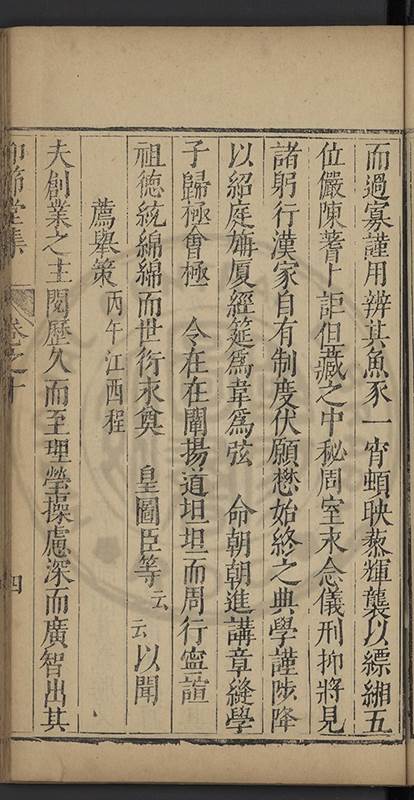 而過寡謹用辨其魚豕一宵頓映藜輝襲以縹緗五
位儼陳蓍卜詎但藏之中秘周室永念儀刑抑將見
諸躬行漢家自有制度伏願懋始終之典學謹陟降
以紹庭旃厦經筵爲韋爲弦　命朝朝進講章縫學
子歸極會極　令在在闡揚道坦坦而周行寍諠
祖德統綿綿而世衍永奠　皇圖臣等云云以聞
薦舉策丙午江西程
夫創業之主閱歷久而至理瑩操慮深而廣智出其
仰節堂集　卷之十　四